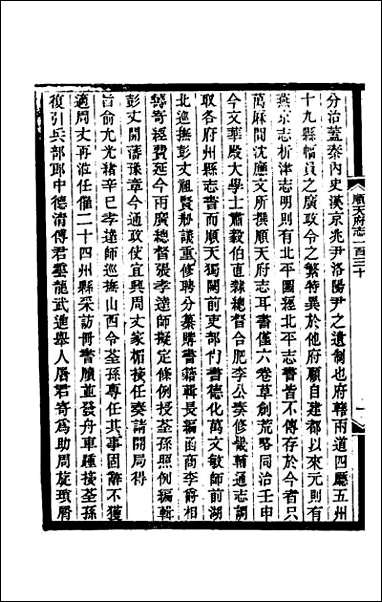 順天府志一百三十
分治蓋秦內史漢京兆尹洛陽尹之遺制也府轄兩道四廳五州
十九縣幅員之廣政令之繁特異於他府顧自建都以來元則有
燕京志析津志明則有北平圖經北平志書皆不傳存於今者只
萬厤間沈應文所撰順天府志耳書僅六卷草創荒略同治壬申
今文華殿大學士肅毅伯直隸總督合肥李公奏修畿輔通志調
取各府州縣志書而順天獨闕前吏部尚書德化萬文敏師前湖
北巡撫彭丈祖賢粉議重修聘分纂購書籍輯長編函商李爵相
籌寄經費延今兩廣總督張孝達師擬定條例授荃孫照例編輯
彭丈開藩豫章今通政使宜興周丈家楣接任奏請開局得
旨俞允光緒辛巳孝達師巡撫山西令荃孫專任其事固辭不獲
適周丈再涖任催二十四州縣采訪冊書牘並發舟車踵接荃孫
復引兵部郎中德清傅君雲龍武進舉人屠君寄為助周旋瑣屑